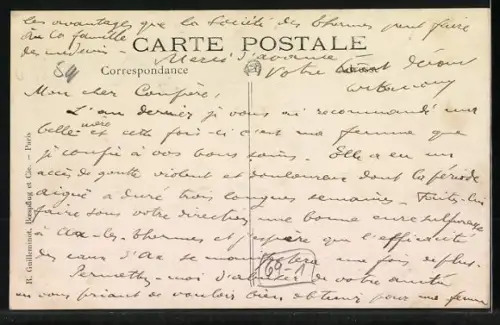 les avantages que la Société des thermes peut faire
à la famille
des médecins -
CARTE POSTALE
Merci d'avance
Correspondance
Votre dévoué
Mon cher Confrère,
L'an dernier je vous ai recommandé ma
belle mère et cette fois-ci c'est ma femme que
je confie à vos bons soins. Elle a eu un
accès de goutte violent et douloureux dont la période
aiguë a duré trois longues semaines. Faites-lui
faire sous votre direction une bonne cure sulfureuse
à Ax-les-Thermes et j'espère que l'efficacité
des eaux d'Ax se manifestera une fois de plus.
69-1
Permettez-moi d'abuser de votre amitié
en vous priant de vouloir bien obtenir pour ma femme
R. Guilleminot, Bœspflug et Cie. - Paris